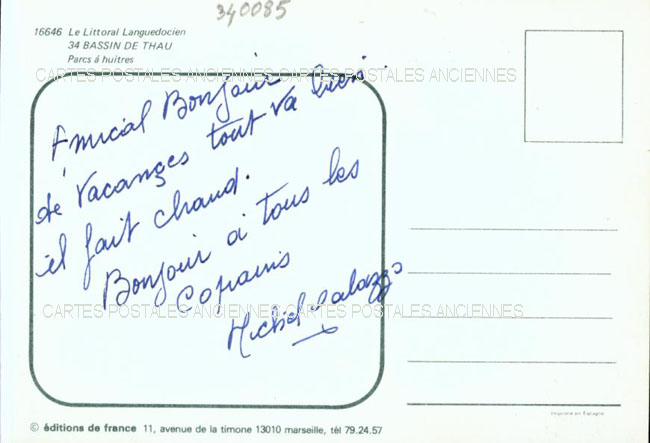 340085
16646 Le Littoral Languedocien
34 BASSIN DE THAU
Parcs á huîtres
CARTES POSTALES ANCIENNES CARTES POSTALES ANCIENNES
Amical Bonjour
de Vacances tout va bien
il fait chaud.
Bonjour à tous les
Copains
Michel Palazzo
CARTES POSTALES ANCIENNES CARTES POSTALES ANCIENNES
Imprimé en Espagne
© éditions de france 11, avenue de la timone 13010 marseille, tél 79.24.57